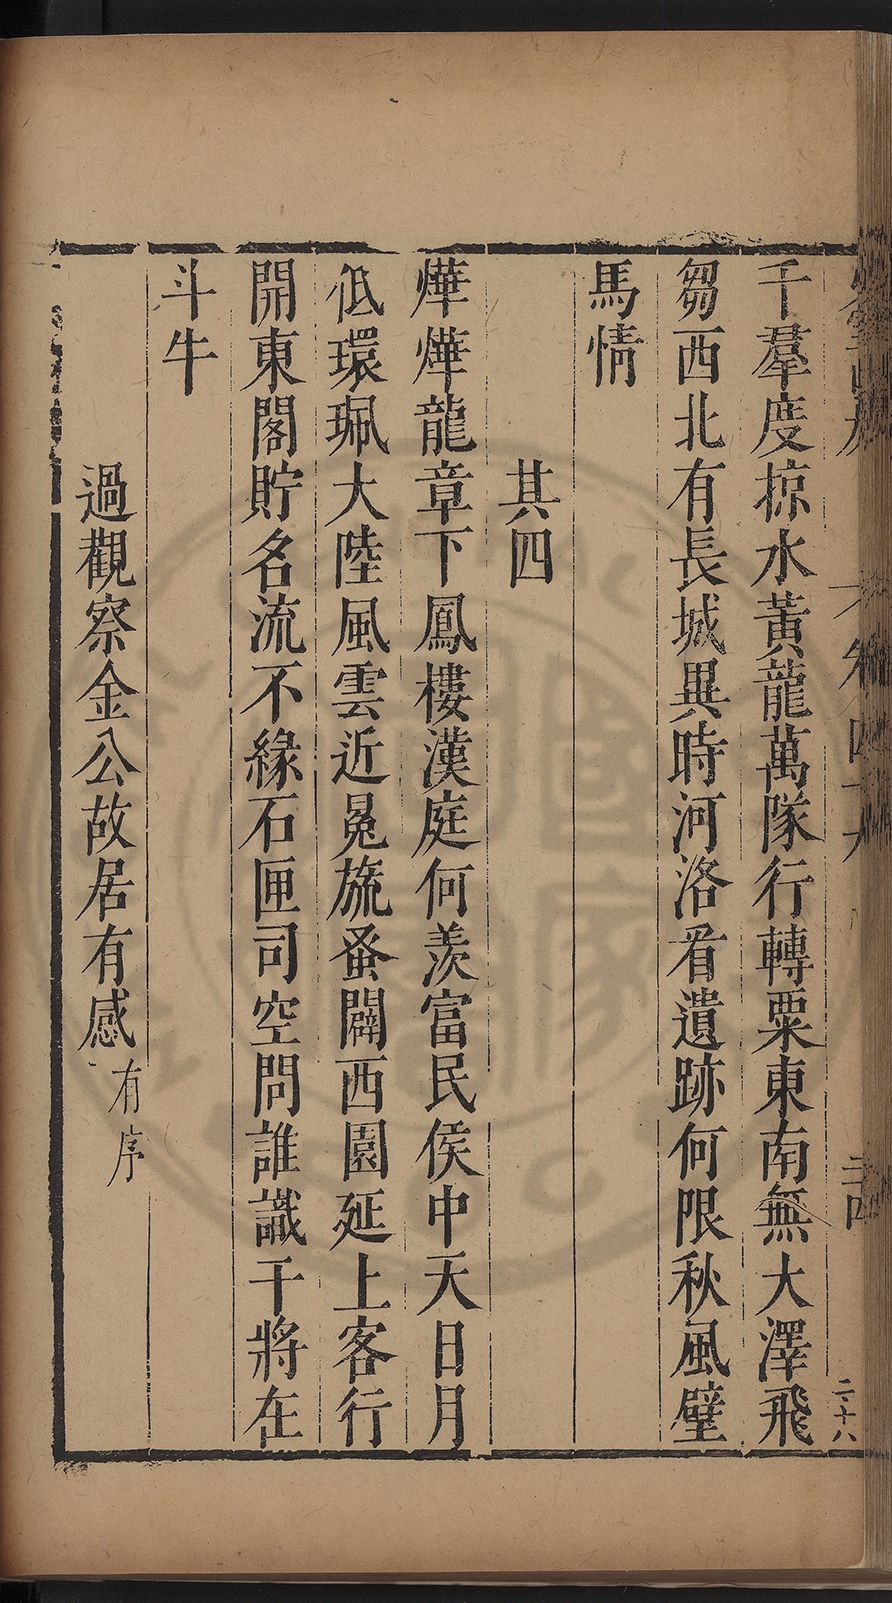 千羣度掠水黃龍萬隊行轉粟東南無大澤飛
芻西北有長城異時河洛看遺跡何限秋風壁
馬情
其四
燁燁龍章下鳳樓漢庭何羨富民侯中天日月
低環珮大陸風雲近冕旒蚤闢西園延上客行
開東閣貯名流不緣石匣司空問誰識干將在
斗牛
過觀察金公故居有感有序